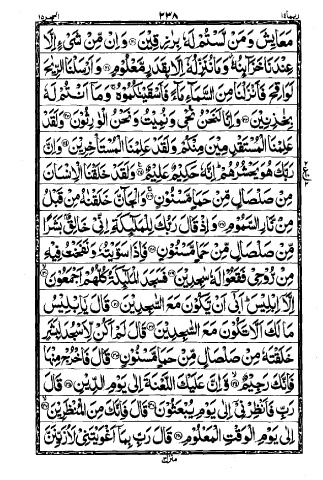 ربما ١٤ ٢٣٨ الحجر ١٥
مَعَايِشَ وَمَنْ لَّسْتُمْ لَهٗ بِرٰزِقِيْنَ ۝ وَاِنْ مِّنْ شَيْءٍ اِلَّا
عِنْدَنَا خَزَآئِنُهٗ وَمَا نُنَزِّلُهٗٓ اِلَّا بِقَدَرٍ مَّعْلُوْمٍ ۝ وَاَرْسَلْنَا الرِّيٰحَ
لَوَاقِحَ فَاَنْزَلْنَا مِنَ السَّمَآءِ مَآءً فَاَسْقَيْنٰكُمُوْهُ ۚ وَمَآ اَنْتُمْ لَهٗ
بِخٰزِنِيْنَ ۝ وَاِنَّا لَنَحْنُ نُحْيٖ وَنُمِيْتُ وَنَحْنُ الْوٰرِثُوْنَ ۝ وَلَقَدْ
عَلِمْنَا الْمُسْتَقْدِمِيْنَ مِنْكُمْ وَلَقَدْ عَلِمْنَا الْمُسْتَاْخِرِيْنَ ۝ وَاِنَّ
رَبَّكَ هُوَ يَحْشُرُهُمْ ۭ اِنَّهٗ حَكِيْمٌ عَلِيْمٌ ۝ وَلَقَدْ خَلَقْنَا الْاِنْسَانَ
مِنْ صَلْصَالٍ مِّنْ حَمَاٍ مَّسْنُوْنٍ ۝ وَالْجَآنَّ خَلَقْنٰهُ مِنْ قَبْلُ
مِنْ نَّارِ السَّمُوْمِ ۝ وَاِذْ قَالَ رَبُّكَ لِلْمَلٰٓئِكَةِ اِنِّيْ خَالِقٌۢ بَشَرًا
مِّنْ صَلْصَالٍ مِّنْ حَمَاٍ مَّسْنُوْنٍ ۝ فَاِذَا سَوَّيْتُهٗ وَنَفَخْتُ فِيْهِ
مِنْ رُّوْحِيْ فَقَعُوْا لَهٗ سٰجِدِيْنَ ۝ فَسَجَدَ الْمَلٰٓئِكَةُ كُلُّهُمْ اَجْمَعُوْنَ ۝
اِلَّآ اِبْلِيْسَ ۭ اَبٰٓى اَنْ يَّكُوْنَ مَعَ السّٰجِدِيْنَ ۝ قَالَ يٰٓاِبْلِيْسُ
مَا لَكَ اَلَّا تَكُوْنَ مَعَ السّٰجِدِيْنَ ۝ قَالَ لَمْ اَكُنْ لِّاَسْجُدَ لِبَشَرٍ
خَلَقْتَهٗ مِنْ صَلْصَالٍ مِّنْ حَمَاٍ مَّسْنُوْنٍ ۝ قَالَ فَاخْرُجْ مِنْهَا
فَاِنَّكَ رَجِيْمٌ ۝ وَّاِنَّ عَلَيْكَ اللَّعْنَةَ اِلٰى يَوْمِ الدِّيْنِ ۝ قَالَ
رَبِّ فَاَنْظِرْنِيْٓ اِلٰى يَوْمِ يُبْعَثُوْنَ ۝ قَالَ فَاِنَّكَ مِنَ الْمُنْظَرِيْنَ ۝
اِلٰى يَوْمِ الْوَقْتِ الْمَعْلُوْمِ ۝ قَالَ رَبِّ بِمَآ اَغْوَيْتَنِيْ لَاُزَيِّنَنَّ
منزل ٣